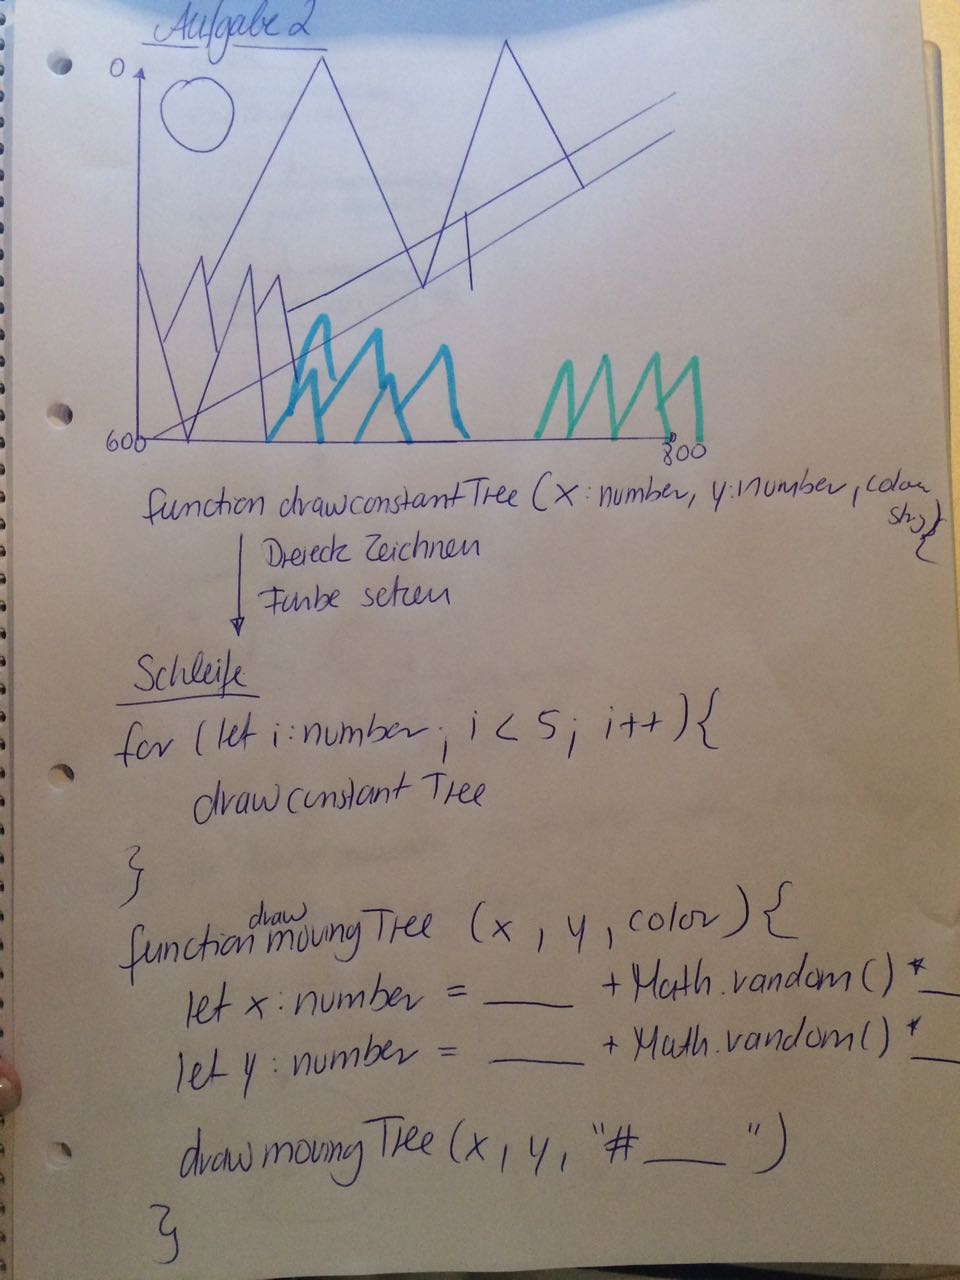 Aufgabe 2
0
600
800
function drawconstantTree (x:number, y:number, colou
Dreieck Zeichnen
Farbe setzen
Schleife
for (let i:number; i < 5; i++){
drawconstantTree
}
draw
function movingTree (x, y, color){
let x:number = ____ + Math.random() * __
let y:number = ____ + Math.random() * __
drawmovingTree (x, y, "# ____ ")
}